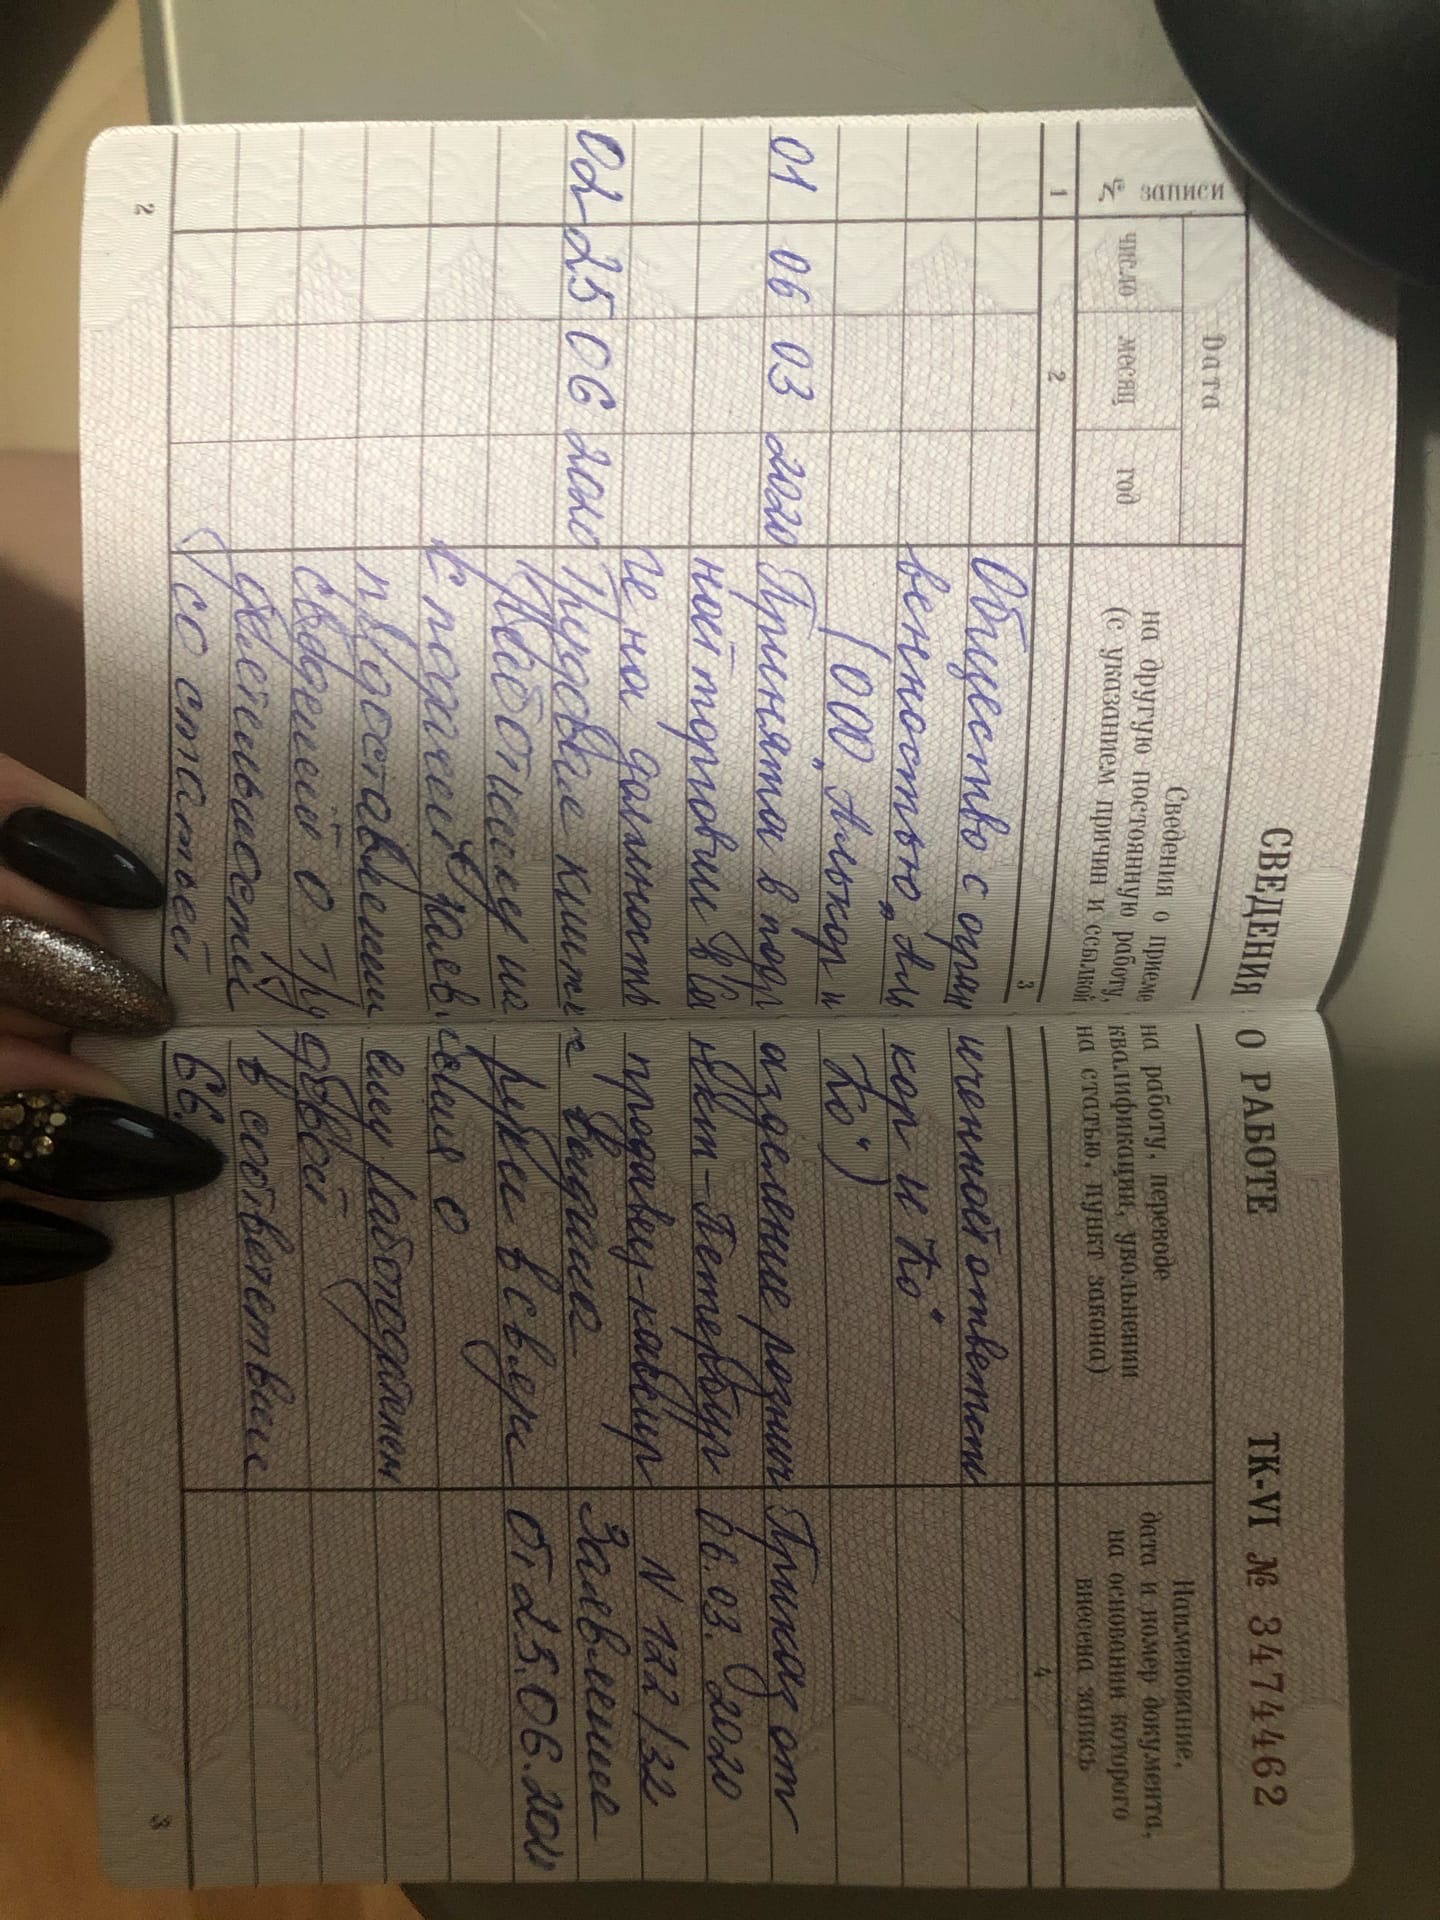 СВЕДЕНИЯ О РАБОТЕ
ТК-VI № 3474462
№ записи
Дата
число
месяц
год
Сведения о приеме на работу, переводе
на другую постоянную работу, квалификации, увольнении
(с указанием причин и ссылкой на статью, пункт закона)
Наименование,
дата и номер документа,
на основании которого
внесена запись
1 2 3 4
Общество с ограниченной ответст
венностью „Алькор и Ко“
(ООО „Алькор и Ко“)
01 06 03 2020 Принята в подразделение рознич Приказ от
ной торговли в Санкт-Петербург 06.03.2020
е на должность продавец-кассир N 122/32
02 25 06 2020 Трудовая книжка выдана Заявление
работнику на руки в связи от 25.06.2020
с подачей заявления о
предоставлении ему работодателем
сведений о трудовой
деятельности в соответствие
со статьей 66.
2 3